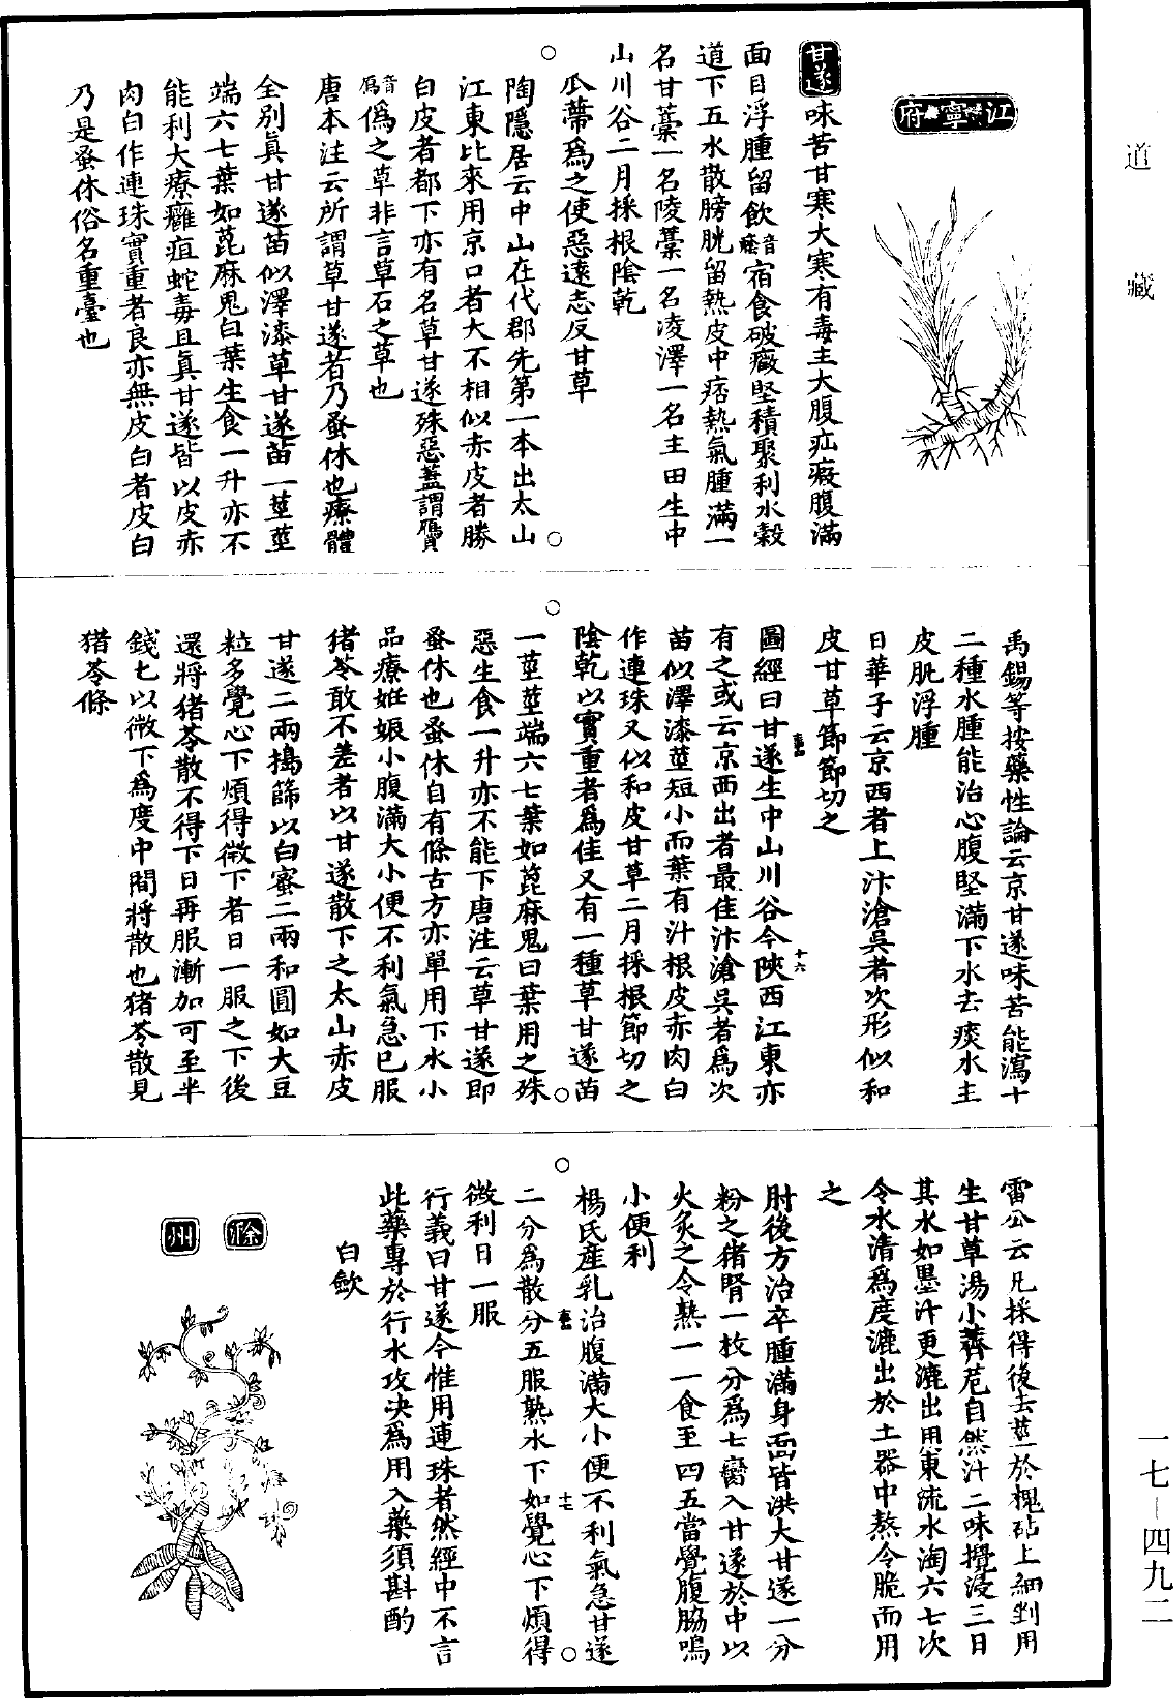 道藏
江寧府
甘遂味苦甘寒大寒有毒主大腹疝瘕腹滿
面目浮腫留飲音癊宿食破癥堅積聚利水穀
道下五水散膀胱留熱皮中痞熱氣腫滿一
名甘藁一名陵藁一名凌澤一名主田生中
山川谷二月採根陰乾
瓜蔕為之使惡遠志反甘草
陶隱居云中山在代郡先第一本出太山
江東比來用京口者大不相似赤皮者勝
白皮者都下亦有名草甘遂殊惡蓋謂贗
音鴈偽之草非言草石之草也
唐本注云所謂草甘遂者乃蚤休也療體
全別真甘遂苗似澤漆草甘遂苗一莖莖
端六七葉如蓖麻鬼臼葉生食一升亦不
能利大療癰疽蛇毒且真甘遂皆以皮赤
肉白作連珠實重者良亦無皮白者皮白
乃是蚤休俗名重臺也
禹錫等按藥性論云京甘遂味苦能瀉十
二種水腫能治心腹堅滿下水去痰水主
皮肌浮腫
日華子云京西者上汴滄吳者次形似和
皮甘草節節切之
圖經曰甘遂生中山川谷今陝西江東亦
有之或云京西出者最佳汴滄吳者為次
苗似澤漆莖短小而葉有汁根皮赤肉白
作連珠又似和皮甘草二月採根節切之
陰乾以實重者為佳又有一種草甘遂苗
一莖莖端六七葉如蓖麻鬼臼葉用之殊
惡生食一升亦不能下唐注云草甘遂即
蚤休也蚤休自有條古方亦單用下水小
品療妊娠小腹滿大小便不利氣急已服
猪苓敢不差者以甘遂散下之太山赤皮
甘遂二兩擣篩以白蜜二兩和圓如大豆
粒多覺心下煩得微下者日一服之下後
還將猪苓散不得下日再服漸加可至半
錢匕以微下為度中間將散也猪苓散見
猪苓條
十六
雷公云凡採得後去莖於槐砧上細剉用
生甘草湯小薺苨自然汁二味攪浸三日
其水如墨汁更漉出用東流水淘六七次
令水清為度漉出於土器中熬令脆而用
之
肘後方治卒腫滿身面皆洪大甘遂一分
粉之猪腎一枚分為七臠入甘遂於中以
火炙之令熟一一食至四五當覺腹脇鳴
小便利
楊氏產乳治腹滿大小便不利氣急甘遂
二分為散分五服熟水下如覺心下煩得
微利日一服
十七
衍義曰甘遂今惟用連珠者然經中不言
此藥專於行水攻決為用入藥須斟酌
白歛
滁州
一七－四九二